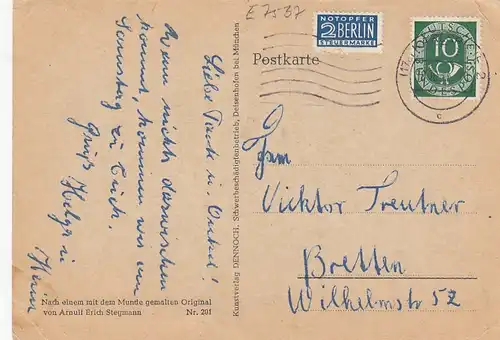 E 7s 37
NOTOPFER
2 BERLIN
STEUERMARKE
10
Postkarte
Liebe Tante u. Onkel!
Wenn nichts dazwischen
kommt, kommen wir am
Sonntag zu Euch.
Gruß Helga u
Heini
Kunstverlag DENNOCH, Schwerbeschädigtenbetrieb, Deisenhofen bei München
Nach einem mit dem Munde gemalten Original
von Arnulf Erich Stegmann Nr. 201
Viktor Treutner
Bretten
Wilhelmstr 52